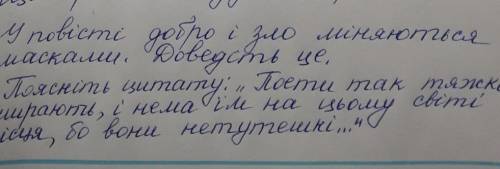 У повісті добро і зло міняються
масками. Доведіть це.
Поясніть цитату: „Поети так тяжко
ирають, і нема їм на цьому світі
ісця, бо вони нетутешні..."